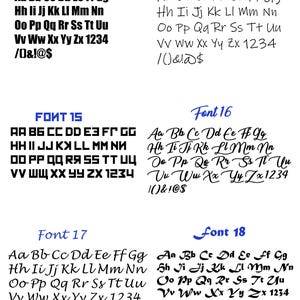 Hh Ii Jj Kk Ll Mm Nn
Oo Pp Qq Rr Ss Tt Uu
Vv Ww Xx Yy Zz 1234
/()&!@$
Hh Ii Jj Kk Ll Mm Nn
Oo Pp Qq Rr Ss Tt Uu
Vv Ww Xx Yy Zz 1234
/()&!@$
FONT 15
AA BB CC DD EE FF GG
HH II JJ KK LL MM NN
OO PP QQ RR SS TT UU
VV WW XX YY ZZ 1234
Font 16
Aa Bb Cc Dd Ee Ff Gg
Hh Ii Jj Kk Ll Mm Nn
Oo Pp Qq Rr Ss Tt Uu
Vv Ww Xx Yy Zz 1234
/()&!@$
Font 17
Aa Bb Cc Dd Ee Ff Gg
Hh Ii Jj Kk Ll Mm Nn
Oo Pp Qq Rr Ss Tt Uu
Vv Ww Xx Yy Zz 1234
Font 18
Aa Bb Cc Dd Ee Ff Gg
Hh Ii Jj Kk Ll Mm Nn
Oo Pp Qq Rr Ss Tt Uu
Vv Ww Xx Yy Zz 1234